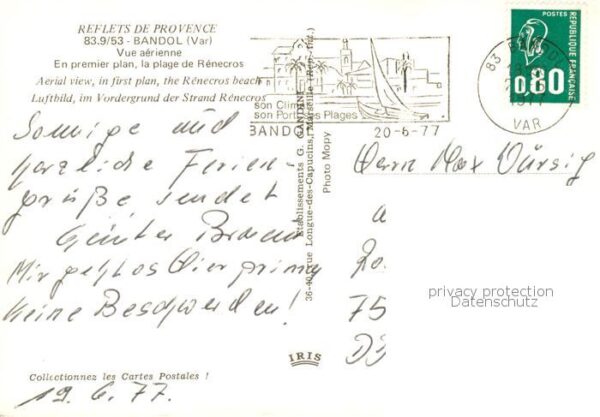 REFLETS DE PROVENCE
83.9/53 - BANDOL (Var)
Vue aérienne
En premier plan, la plage de Rénecros
Aerial view, in first plan, the Rénecros beach
Luftbild, im Vordergrund der Strand Rénecros
Sonnige und
herzliche Ferien-
grüße sendet
Günter
Mir geht's hier prima
keine Beschwerden!
Collectionnez les Cartes Postales !
19.6.77.
Etablissements G. GANDINI
36-40, rue Longue-des-Capucins, Marseille (Rep. Int.)
Photo Mopy
IRIS
son Clim
son Port ses Plages
BANDOL
20-6-77
83 BANDOL
VAR
POSTES
REPUBLIQUE FRANÇAISE
0,80
Herrn Max
75
privacy protection
Datenschutz